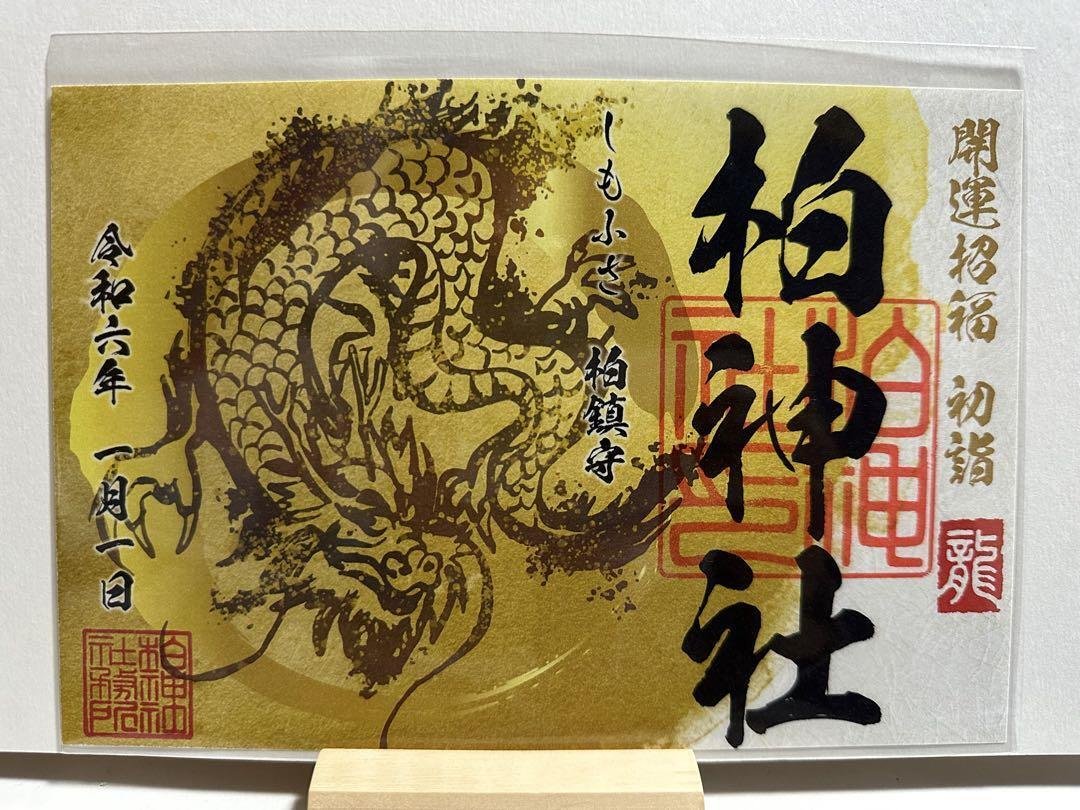 開運招福 初詣
龍
柏神社
柏神社印
しもふさ 柏鎮守
令和六年 一月一日
柏神社社務所印